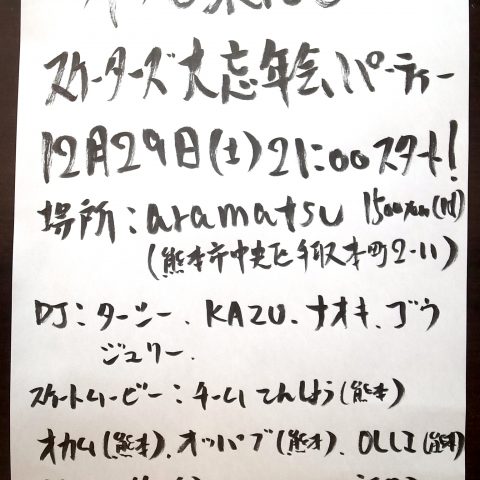 スケーターズ大忘年会パーティー
12月29日(土)21:00スタート!
場所:aramatsu 1500yen(1d)
(熊本市中央区手取本町2-11)
DJ:ターシー、KAZU、ナオキ、ゴウ
ジュリー、
スケートムービー:チームてんしょう(熊本)
オカム(熊本)、オッパブ(熊本)、OLLI(熊本)